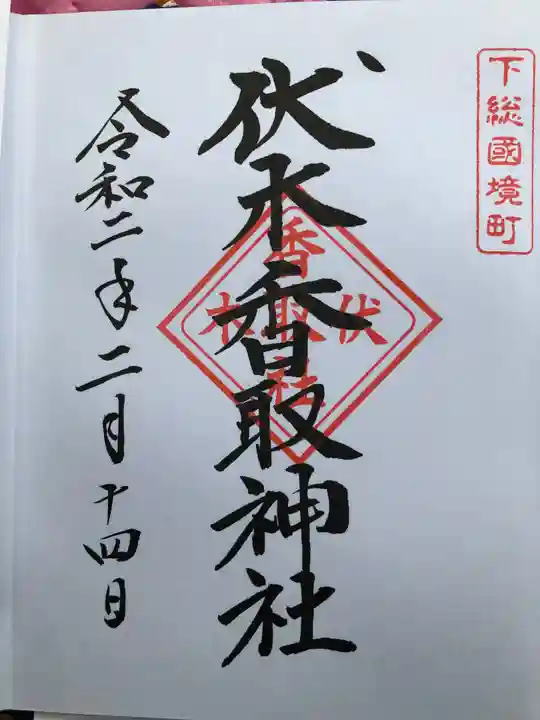 下総國境町
伏木香取神社
香取社
伏木
令和二年二月十四日